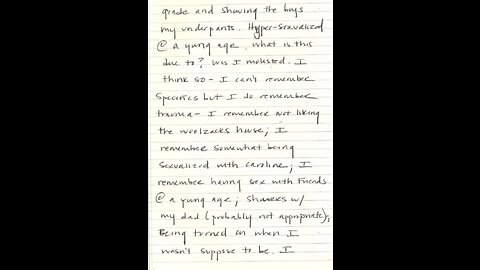 grade and showing the boys
my underpants. Hyper-sexualized
@ a young age. What is this
due to? Was I molested. I
think so - I can't remember
specifics but I do remember
trauma - I remember not liking
the woolzacks house; I
remember somewhat being
sexualized with caroline; I
remember having sex with friends
@ a young age; showers w/
my dad (probably not appropriate);
Being turned on when I
wasn't suppose to be. I